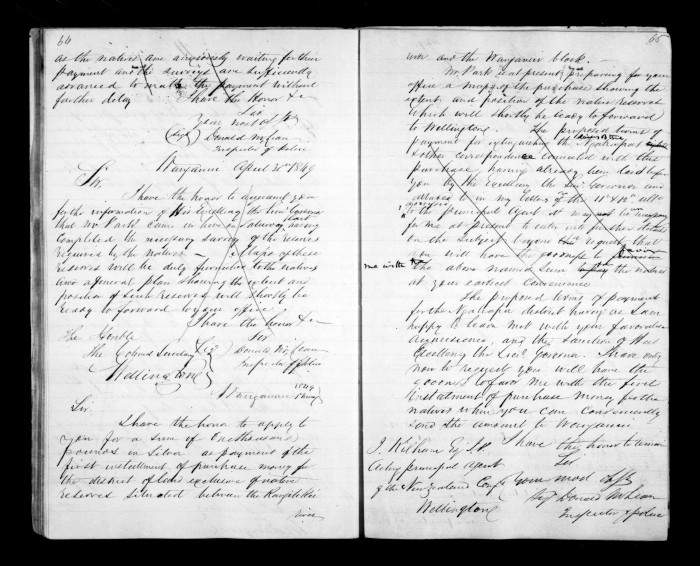 66
as the natives are anxiously waiting for their
payment and the surveys are sufficiently
advanced to make the payment without
further delay I have the Honor &c
Sir
Your most Ob
(Sigd) Donald McLean
Inspector of Police
Wanganui April 1849
Sir,
I have the honor to acquaint you
for the information of His Excellency the Lieut Governor
that Mr Park came in here on Saturday having
completed the necessary survey of the reserves
required by the natives maps of these
reserves will be duly furnished to the natives
and a general plan showing the extent and
position of such reserves will shortly be
ready to forward to your office
I have the honor &c
The Honble Sir
The Colonial Secretary Donald McLean
Wellington Inspector of Police
1849
Wanganui
Sir.
I have the honor to apply to
you for a sum of one thousand
pounds in Silver as payment of the
first installment of purchase money for
the district of land exclusive of native
reserves situated between the Rangitikei
river
65
river and the Wanganui block.
Mr. Park is at present preparing for your
office a map of the purchase showing the
extent and position of the native reserves
which will shortly be ready to forward
to Wellington. The proposed terms of
payment for extinguishing the
& other correspondence connected with this
purchase having already been laid before
you by His Excellency the Lieut Governor and
in my letters of the 11th & 12th ulto
to the principal Agent it may not be necessary
for me at present to enter into further details
on the subject beyond request that
you will have the goodness to
me with the above named sum the natives
at your earliest convenience
The proposed terms of payment
for the district having as I am
happy to learn met with your favorable
and the sanction of His
Excellency the Lieut Governor. I have only
now to request you will have the
goodness to favor me with the first
installment of purchase money for the
natives when you can conveniently
send the amount to Wanganui.
I have the honor to remain
J. Kelham Esq J.P. Sir
Acting principal Agent
of the New Zealand Comp Your most
Wellington Sigd Donald McLean
Inspector of Police